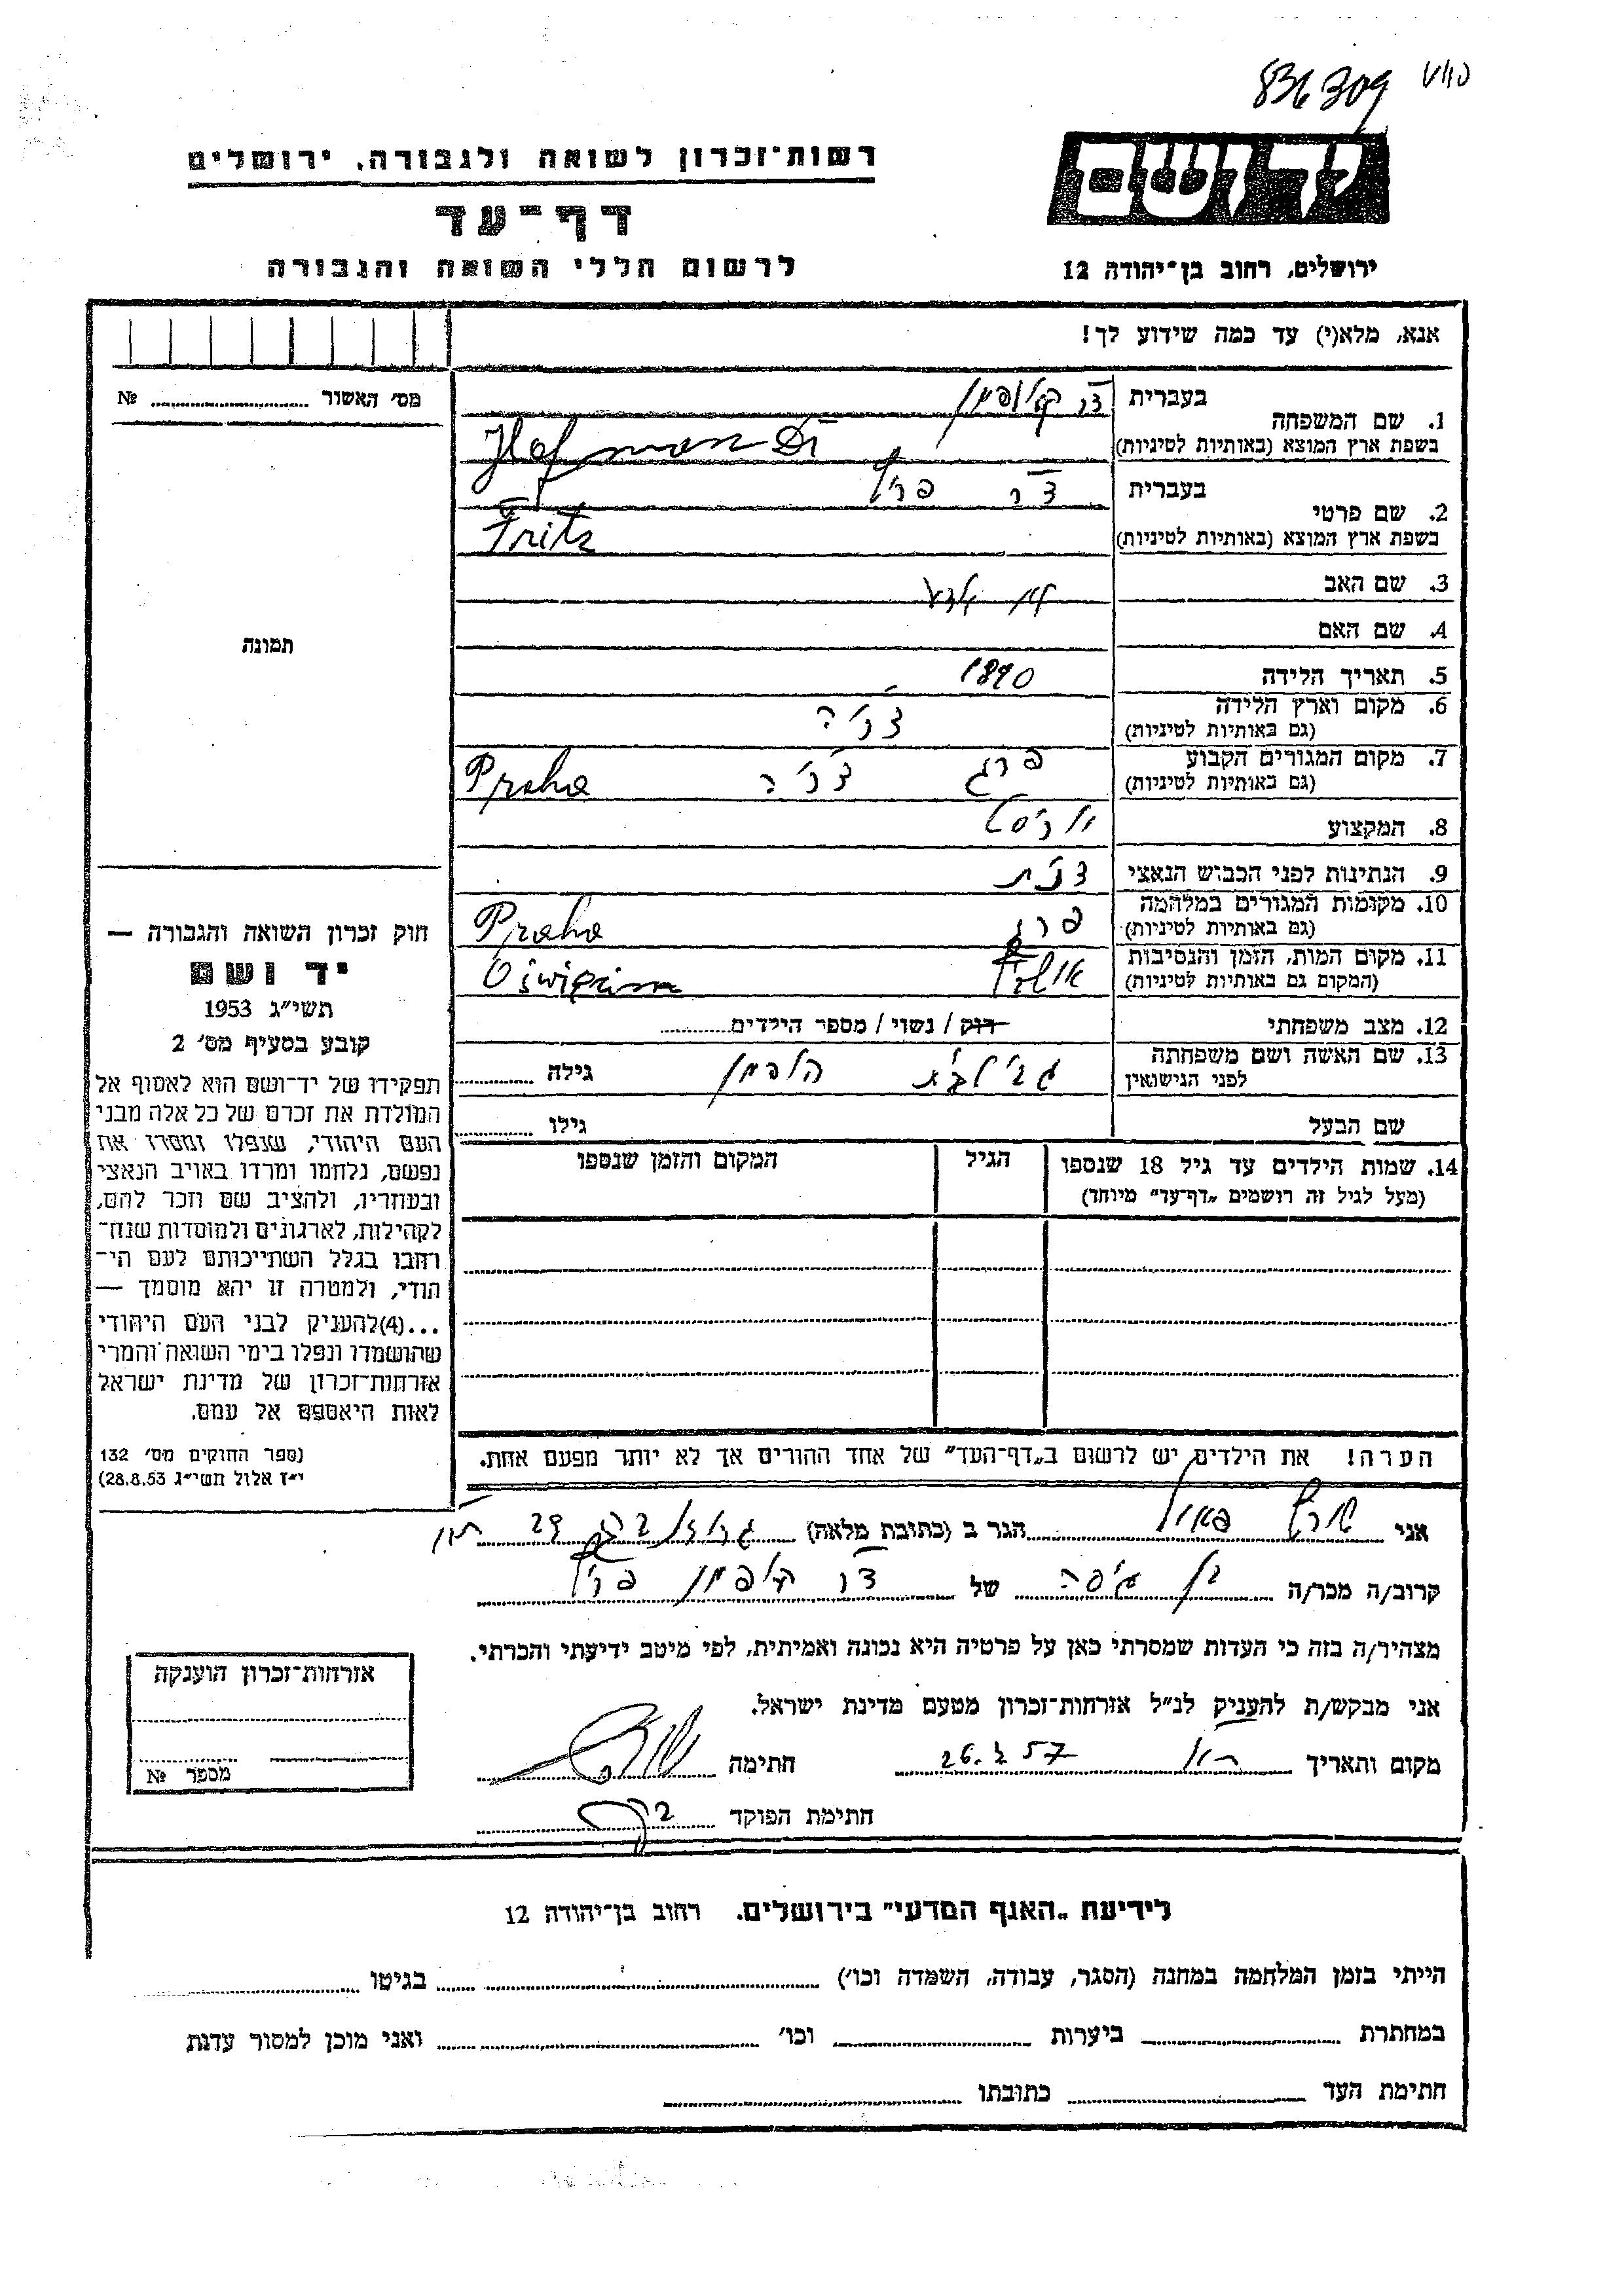 836309
רשות־זכרון לשואה ולגבורה, ירושלים
דף־עד
לרשום חללי השואה והגבורה
יד ושם
ירושלים, רחוב בן־יהודה 12
אנא, מלא(י) עד כמה שידוע לך!
מס׳ האשור № 
1. שם המשפחה
בעברית
בשפת ארץ המוצא (באותיות לטיניות) Hofman Dr
2. שם פרטי
בעברית פריץ
בשפת ארץ המוצא (באותיות לטיניות) Fritz
3. שם האב
4. שם האם
תמונה
5. תאריך הלידה 1890
6. מקום וארץ הלידה
(גם באותיות לטיניות) צ׳כיה
7. מקום המגורים הקבוע
(גם באותיות לטיניות) פרג צ׳כיה Praha
8. המקצוע
9. הנתינות לפני הכבוש הנאצי צ׳כית
10. מקומות המגורים במלחמה
(גם באותיות לטיניות) פרג Praha
11. מקום המות, הזמן והנסיבות
(המקום גם באותיות לטיניות) Oświęcim
12. מצב משפחתי רוק / נשוי / מספר הילדים
13. שם האשה ושם משפחתה
לפני הנישואין הופמן גילה
שם הבעל גילו
14. שמות הילדים עד גיל 18 שנספו
(מעל לגיל זה רושמים „דף־עד״ מיוחד)
הגיל
המקום והזמן שנספו
חוק זכרון השואה והגבורה —
יד ושם
תשי״ג 1953
קובע בסעיף מס׳ 2
תפקידו של יד־ושם הוא לאסוף אל
המולדת את זכרם של כל אלה מבני
העם היהודי, שנפלו ומסרו את
נפשם, נלחמו ומרדו באויב הנאצי
ובעוזריו, ולהציב שם וזכר להם,
לקהילות, לארגונים ולמוסדות שנח־
רבו בגלל השתייכותם לעם הי־
הודי, ולמטרה זו יהא מוסמך —
...(4)להעניק לבני העם היהודי
שהושמדו ונפלו בימי השואה והמרי
אזרחות־זכרון של מדינת ישראל
לאות היאספם אל עמם.
(ספר החוקים מס׳ 132
י״ז אלול תשי״ג 28.8.53)
הערה! את הילדים יש לרשום ב„דף־העד״ של אחד ההורים אך לא יותר מפעם אחת.
אני שורץ פאול הגר ב (כתובת מלאה) 29
קרוב/ה מכר/ה בן של דר הופמן פריץ
מצהיר/ה בזה כי העדות שמסרתי כאן על פרטיה היא נכונה ואמיתית, לפי מיטב ידיעתי והכרתי.
אני מבקש/ת להעניק לנ״ל אזרחות־זכרון מטעם מדינת ישראל.
מקום ותאריך 26.2 57 חתימה
חתימת הפוקד
אזרחות־זכרון הוענקה
מספר №
לידיעת „האגף המדעי״ בירושלים. רחוב בן־יהודה 12
הייתי בזמן המלחמה במחנה (הסגר, עבודה, השמדה וכו׳) בגיטו
במחתרת ביערות וכו׳ ואני מוכן למסור עדות
חתימת העד כתובתו